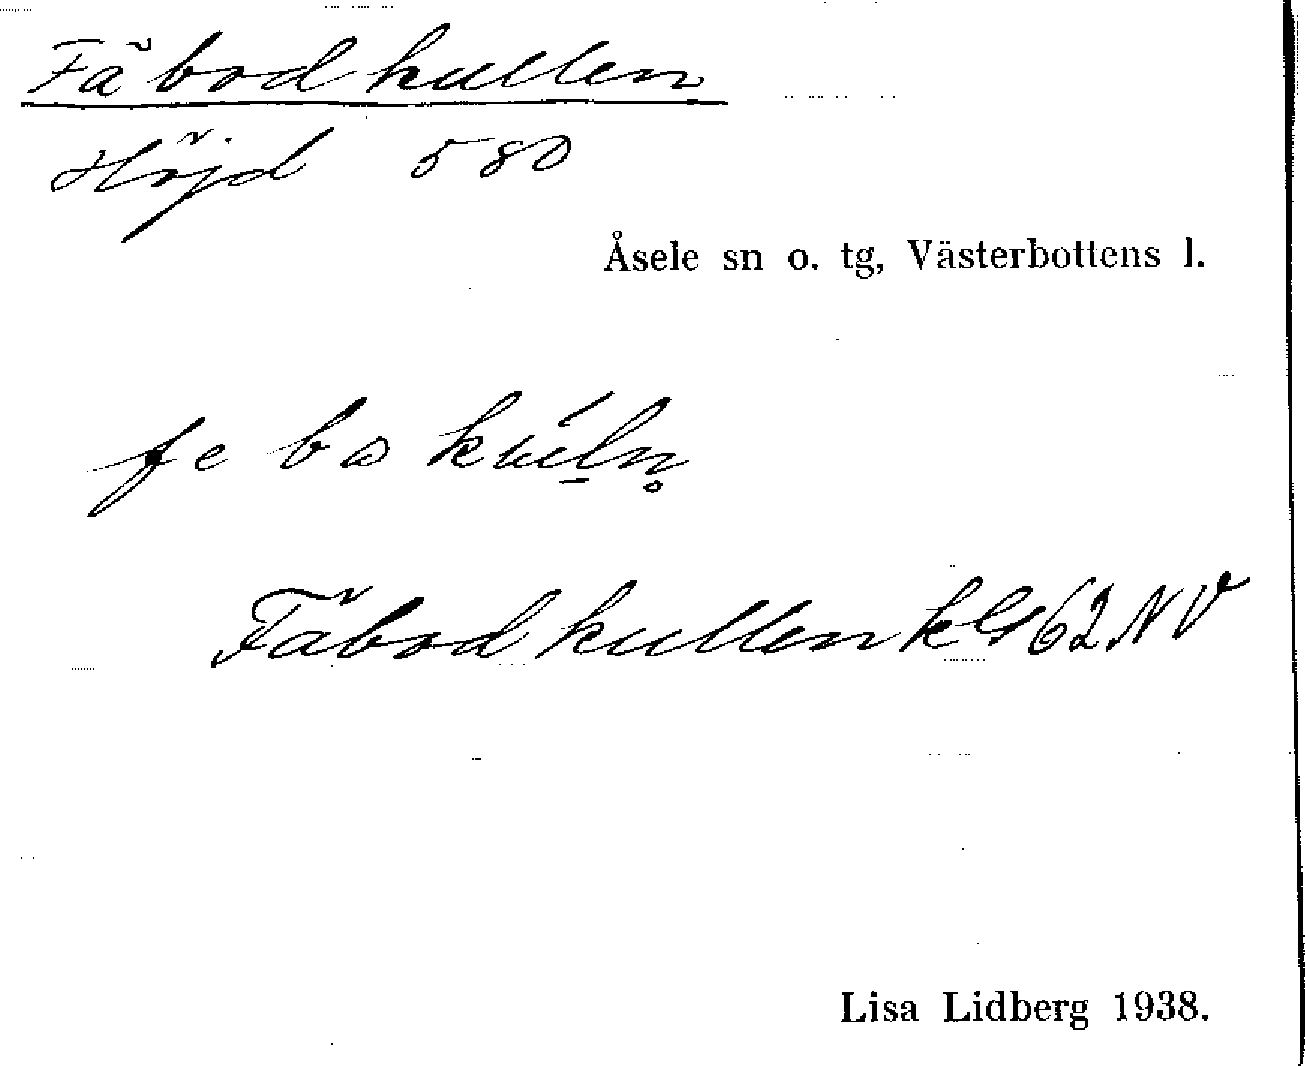 Fäbodkullen
Höjd 580
Åsele sn o. tg, Västerbottens l.
Fäbodkullen kbl 62 NV
Lisa Lidberg 1938.